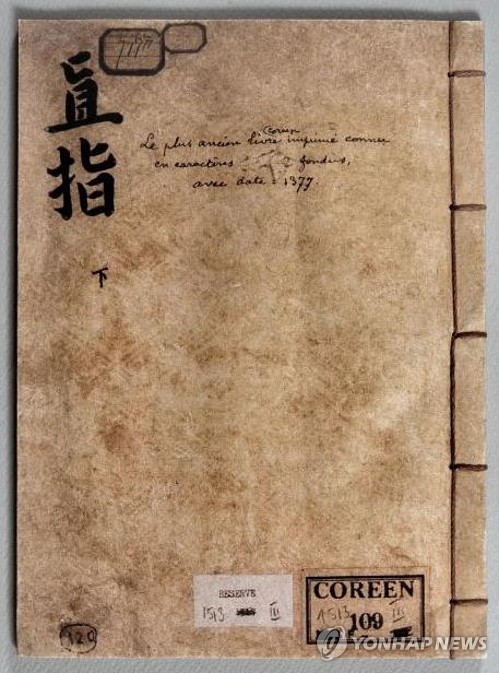 直指
下
Le plus ancien livre Coréen imprimé connu
en caractères fondus,
avec date = 1377.
RESERVE
1513 III
COREEN
1513 III
109
120
YONHAP NEWS